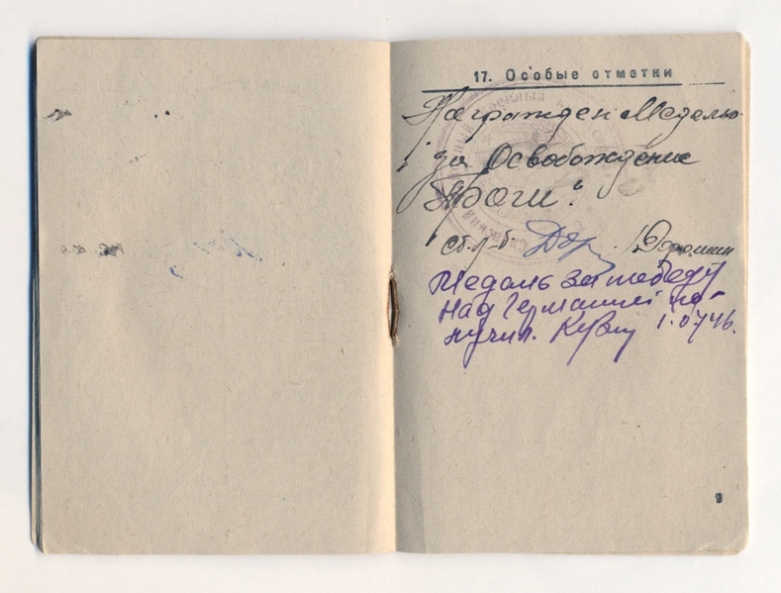 17. Особые отметки
Награжден Медалью
"за Освобождение
Праги".
Ст. л-т
Медаль за победу
над Германией по-
лучил. 1.07.46.
9